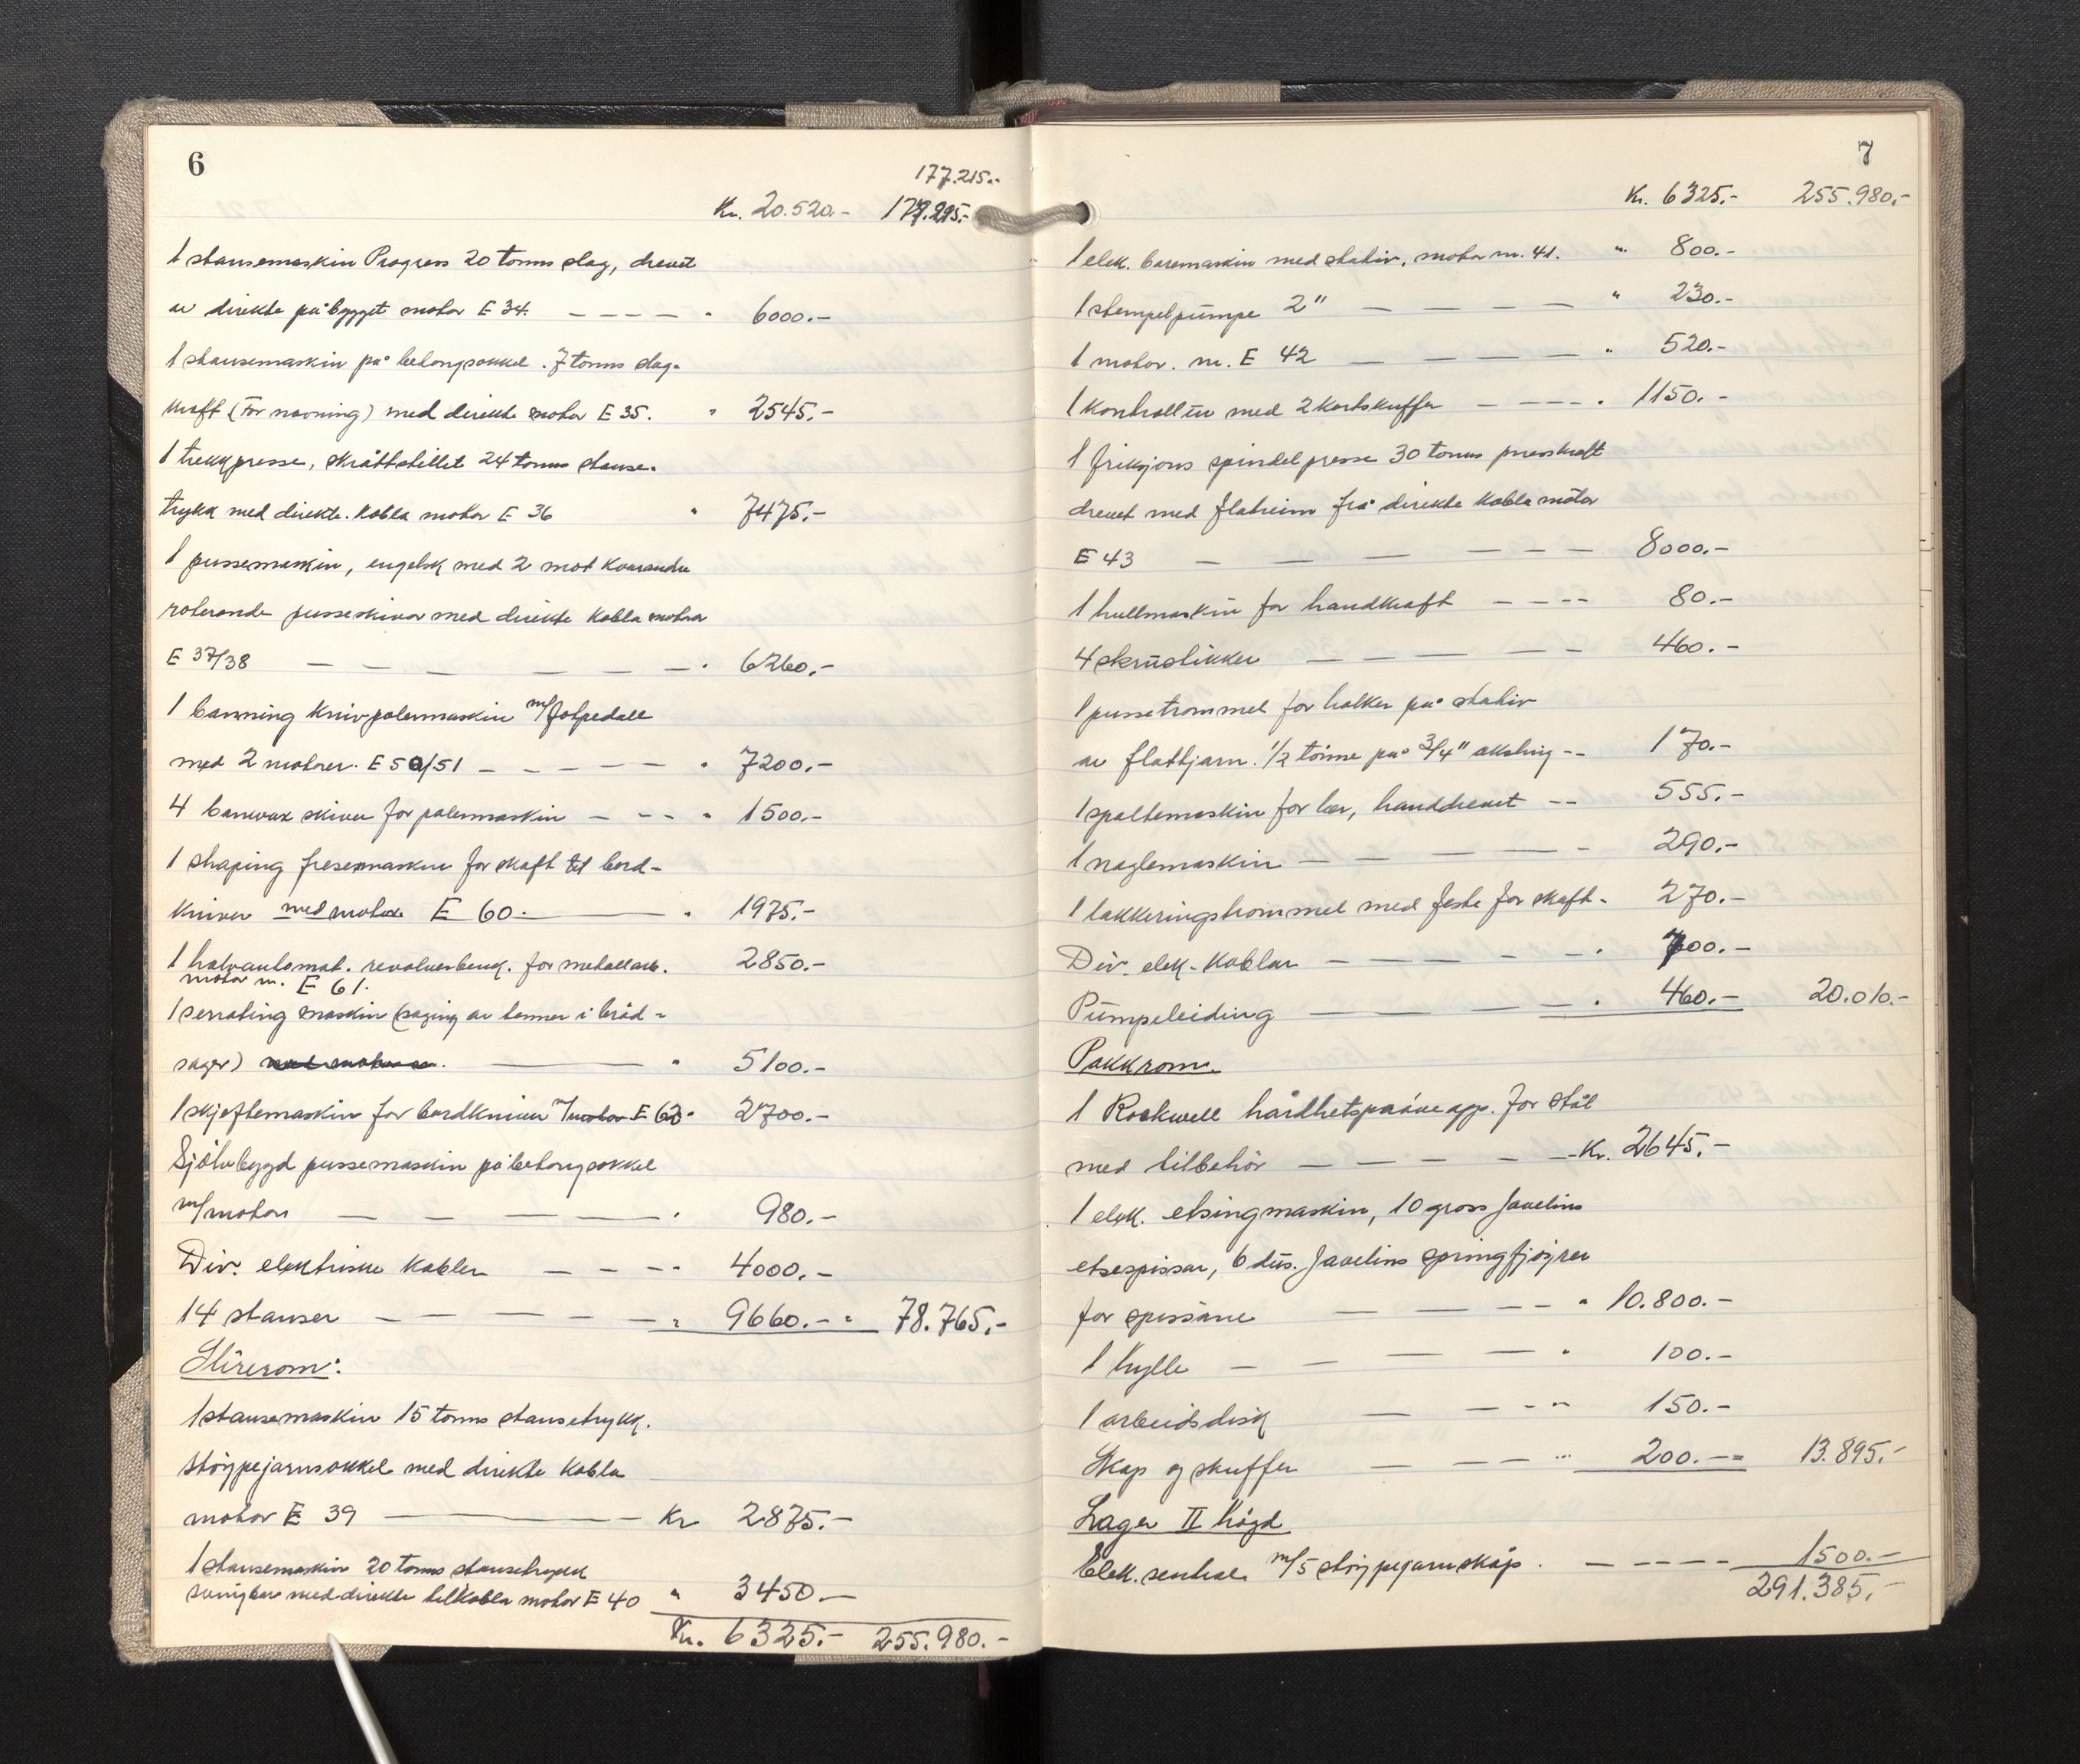 6
177.215.-
Kr. 20.520.- 177.215.-
1 stansemaskin Progress 20 tonns slag, drevet
av direkte påbygget motor E 34. - - - - " 6000.-
1 stansemaskin på betongsokkel. 7 tonns slag-
kraft (For navning) med direkte motor E 35. " 2545.-
1 trekkpresse, skråttstillet 24 tonns stanse-
trykk med direkte. kobla motor E 36 " 7475.-
1 pussemaskin, engelsk med 2 mot kvarandre
roterande pusseskiver med direkte kobla motorer
E 37/38 - - - - - - " 6260.-
1 Canning knivpolermaskin m/fotpedall
med 2 motorer. E 50/51 - - - - - " 7200.-
4 Canwax skiver for polermaskin - - - " 1500.-
1 shaping fresemaskin for skaft til bord-
kniver med motor E 60. " 1975.-
1 halvautomat. revolverbenk. for metallarb. 2850.-
motor nr. E 61.
1 serrating maskin (saging av tenner i bröd-
sager) " 5100.-
1 skjeftemaskin for bordkniver m/motor E 62. 2700.-
Sjölvbygd pussemaskin på betongsokkel
m/motor - - - - - " 980.-
Div. elektriske kabler - - - - 4000.-
14 stanser - - - - - " 9660.- " 78.765.-
Slirerom:
1 stansemaskin 15 tonns stansetrykk.
støypejarnsokkel med direkte kobla
motor E 39 Kr 2875.-
1 stansemaskin 20 tonns stansetrykk
svingbar med direkte tilkobla motor E 40 " 3450.-
Kr. 6325.- 255.980.-
7
Kr. 6325.- 255.980.-
1 elek. boremaskin med stativ, motor nr. 41. " 800.-
1 stempelpumpe 2" - - - - " 230.-
1 motor. nr. E 42 - - - - " 520.-
1 kontrollur med 2 kortskuffer - - - - " 1150.-
1 friksjons spindelpresse 30 tonns presskraft
drevet med flatreim frå direkte kobla motor
E 43 - - - - - - 8000.-
1 hullmaskin for handkraft - - - - 80.-
4 skrustikker - - - - - - 460.-
1 pussetrommel for holker på stativ
av flattjarn. 1/2 tönne på 3/4" aksling - - 170.-
1 spaltemaskin for lær, handdrevet - - 555.-
1 naglemaskin - - - - - 290.-
1 lakkeringstrommel med feste for skaft - 270.-
Div. elek. kablar - - - - - " 700.-
Pumpeleiding - - - - " 460.- 20.010.-
Pakkrom.
1 Rockwell hårdhetsprøveapp. for stål
med tilbehör - - - - - Kr. 2645.-
1 elek. etsingmaskin, 10 gross Javelins
etsespissar, 6 dus. Javelins springfjøjrer
for spissane - - - - " 10.800.-
1 hylle - - - - " 100.-
1 arbeidsdisk - - - - 150.-
Skap og skuffer - - - - 200.- = 13.895.-
Lager II högd
Elek. sentral m/5 støypejarnskåp. - - - - - 1500.-
291.385.-